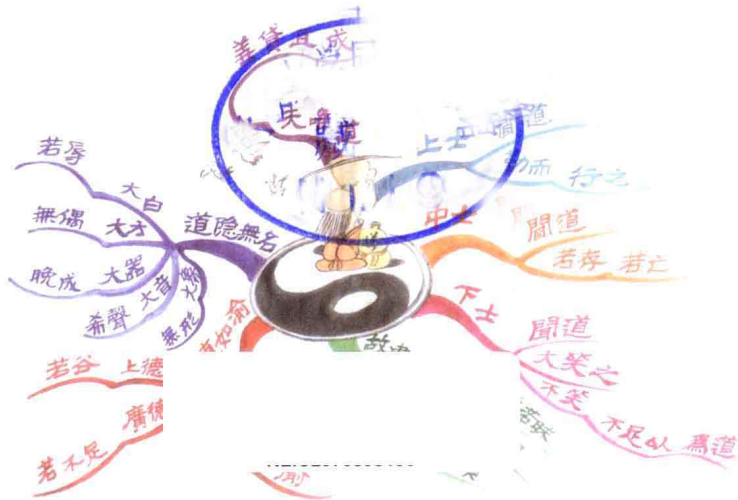 善貸且成
夫唯道
上士
聞道
而行之
中士
聞道
若存 若亡
下士
聞道
大笑之
不笑
不足以 為道
道隐無名
大白
若辱
大才
無偶
大器
晚成
大音
希聲
無形
如渝
上德
若谷
廣德
若不足
故
渝